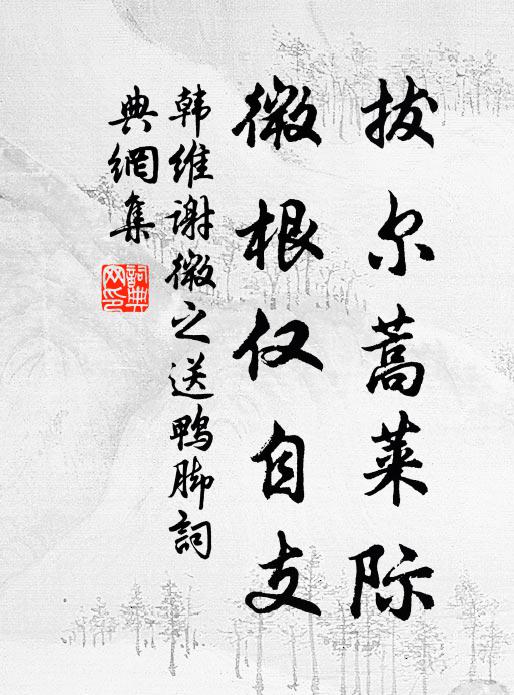 拔尔蒿莱际
微根仅自支
韩维谢微之送鸭脚詞
典網集
詞典網印